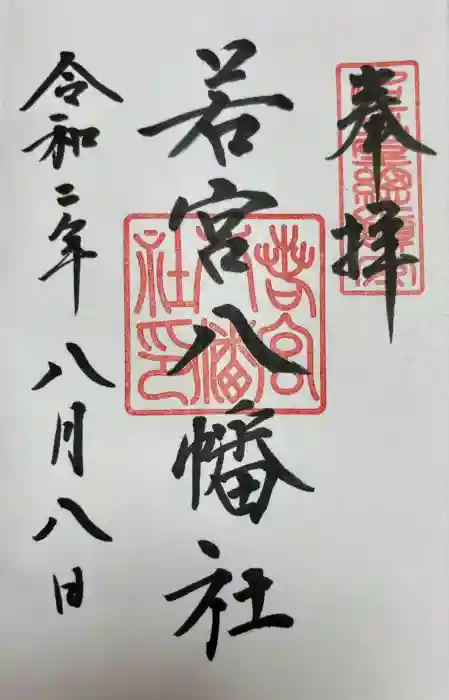 奉拝
若宮八幡社
若宮八幡社印
令和二年八月八日